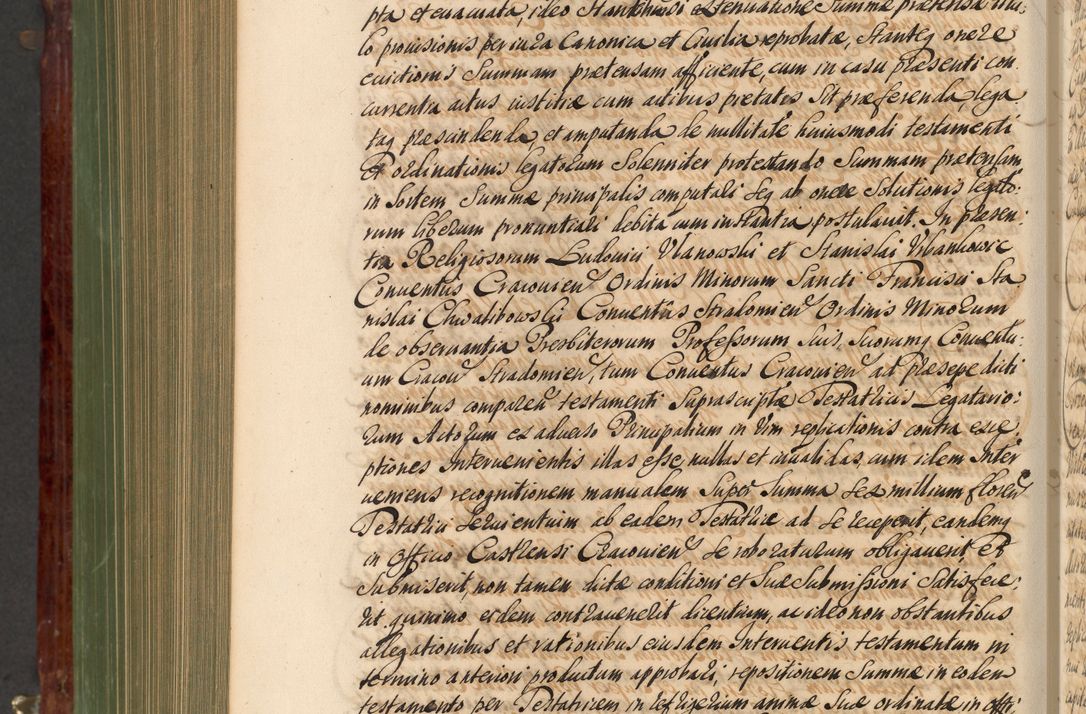 pta et euacuata, ideo stantibusꝗ extenuatione Summæ prætensæ titu:
lo prouisionis per iura Canonica et Ciuilia reprobatæ, stanteq onere
euictionis Summam prætensam afficiente, cum in casu præsenti con
currentia actus iustitiæ cum actibus pietatis sit præferenda, lega
taq præscindenda, et amputanda de nullitate huiusmodi testamenti
et ordinationis legatorum solenniter protestando Summam prætensam
in Sortem Summæ principalis computari seq ab onere solutionis legato:
rum liberum pronuntiari debita cum instantia postulauit. In præsen:
tia Religiosorum Ludouici Ulanowski et Stanislai Urbankowic
Conuentus Cracouien Ordinis Minorum Sancti Francisci Sta
nislai Chwalibowski Conuentus Stradomien Ordinis Minorum
de obseruantia Presbiterorum Professorum suis, suorumq Conuentu:
um Cracou Stradomien, tum Conuentus Cracouien ad Præsepe dicti
nominibus comparen testamenti suprascriptæ Testatricis Legatario:
rum Actorum ex aduerso Principalium in vim replicationis contra exce
ptiones Interuenientis illas esse nullas et inualidas, cum idem Inter
ueniens recognitionem manualem super Summa sex millium floren
Testatrici seruientium ab eadem Testatrice ad se receperit, eandemq
in Officio Castrensi Cracouien se roboraturum obligauerit et
submiserit, non tamen dictæ conditioni et suæ submissioni satisfece:
rit, quinimo eidem contrauenerit dicentium, ac ideo non obstantibus
allegationibus et rationibus eiusdem Interuentis testamentum in
termino anteriori productum approbari, repositionem Summæ in eodem
testamento per Testatricem in refrigerium animæ suæ ordinatæ in offi: